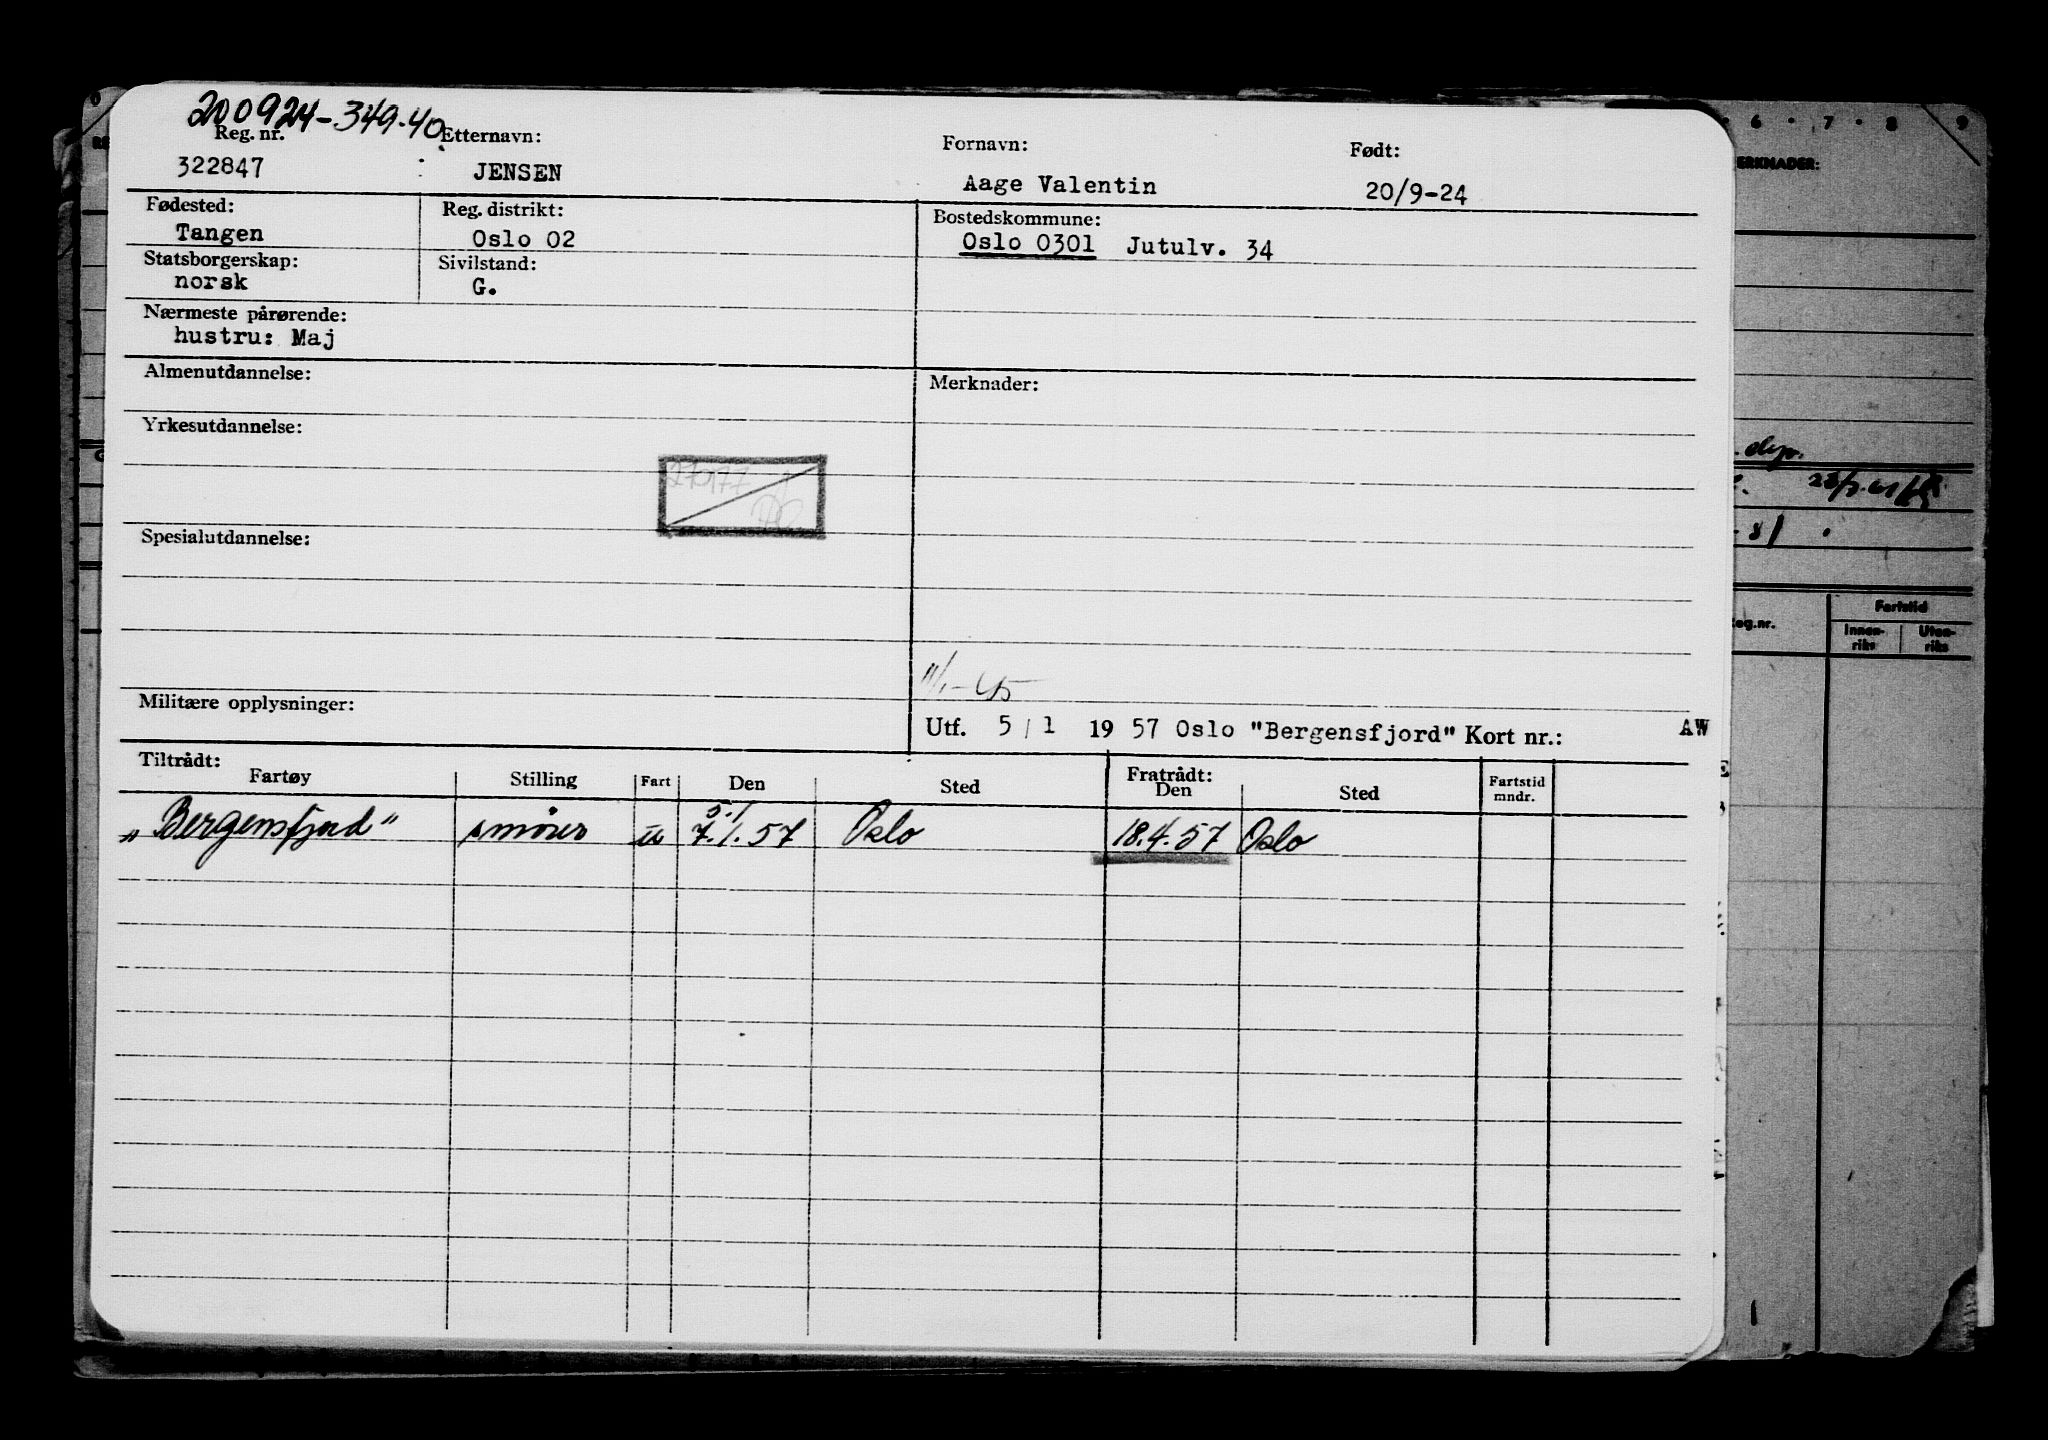 200924-349.40
Reg. nr. Etternavn: Fornavn: Født:
322847 JENSEN Aage Valentin 20/9-24
Fødested: Reg. distrikt: Bostedskommune:
Tangen Oslo 02 Oslo 0301 Jutulv. 34
Statsborgerskap: Sivilstand:
norsk G.
Nærmeste pårørende:
hustru: Maj
Almenutdannelse: Merknader:
Yrkesutdannelse:
270177
Spesialutdannelse:
11/1-45
Militære opplysninger:
Utf. 5/1 1957 Oslo "Bergensfjord" Kort nr.: AW
Tiltrådt: Fratrådt:
Fartøy Stilling Fart Den Sted Den Sted Fartstid mndr.
5./
„Bergensfjord" smører u 7.1.57 Oslo 18.4.57 Oslo
6 · 7 · 8 9
ERKNADER:
dep.
81
Fartstid
eg.nr. Innen-riks Uten-riks